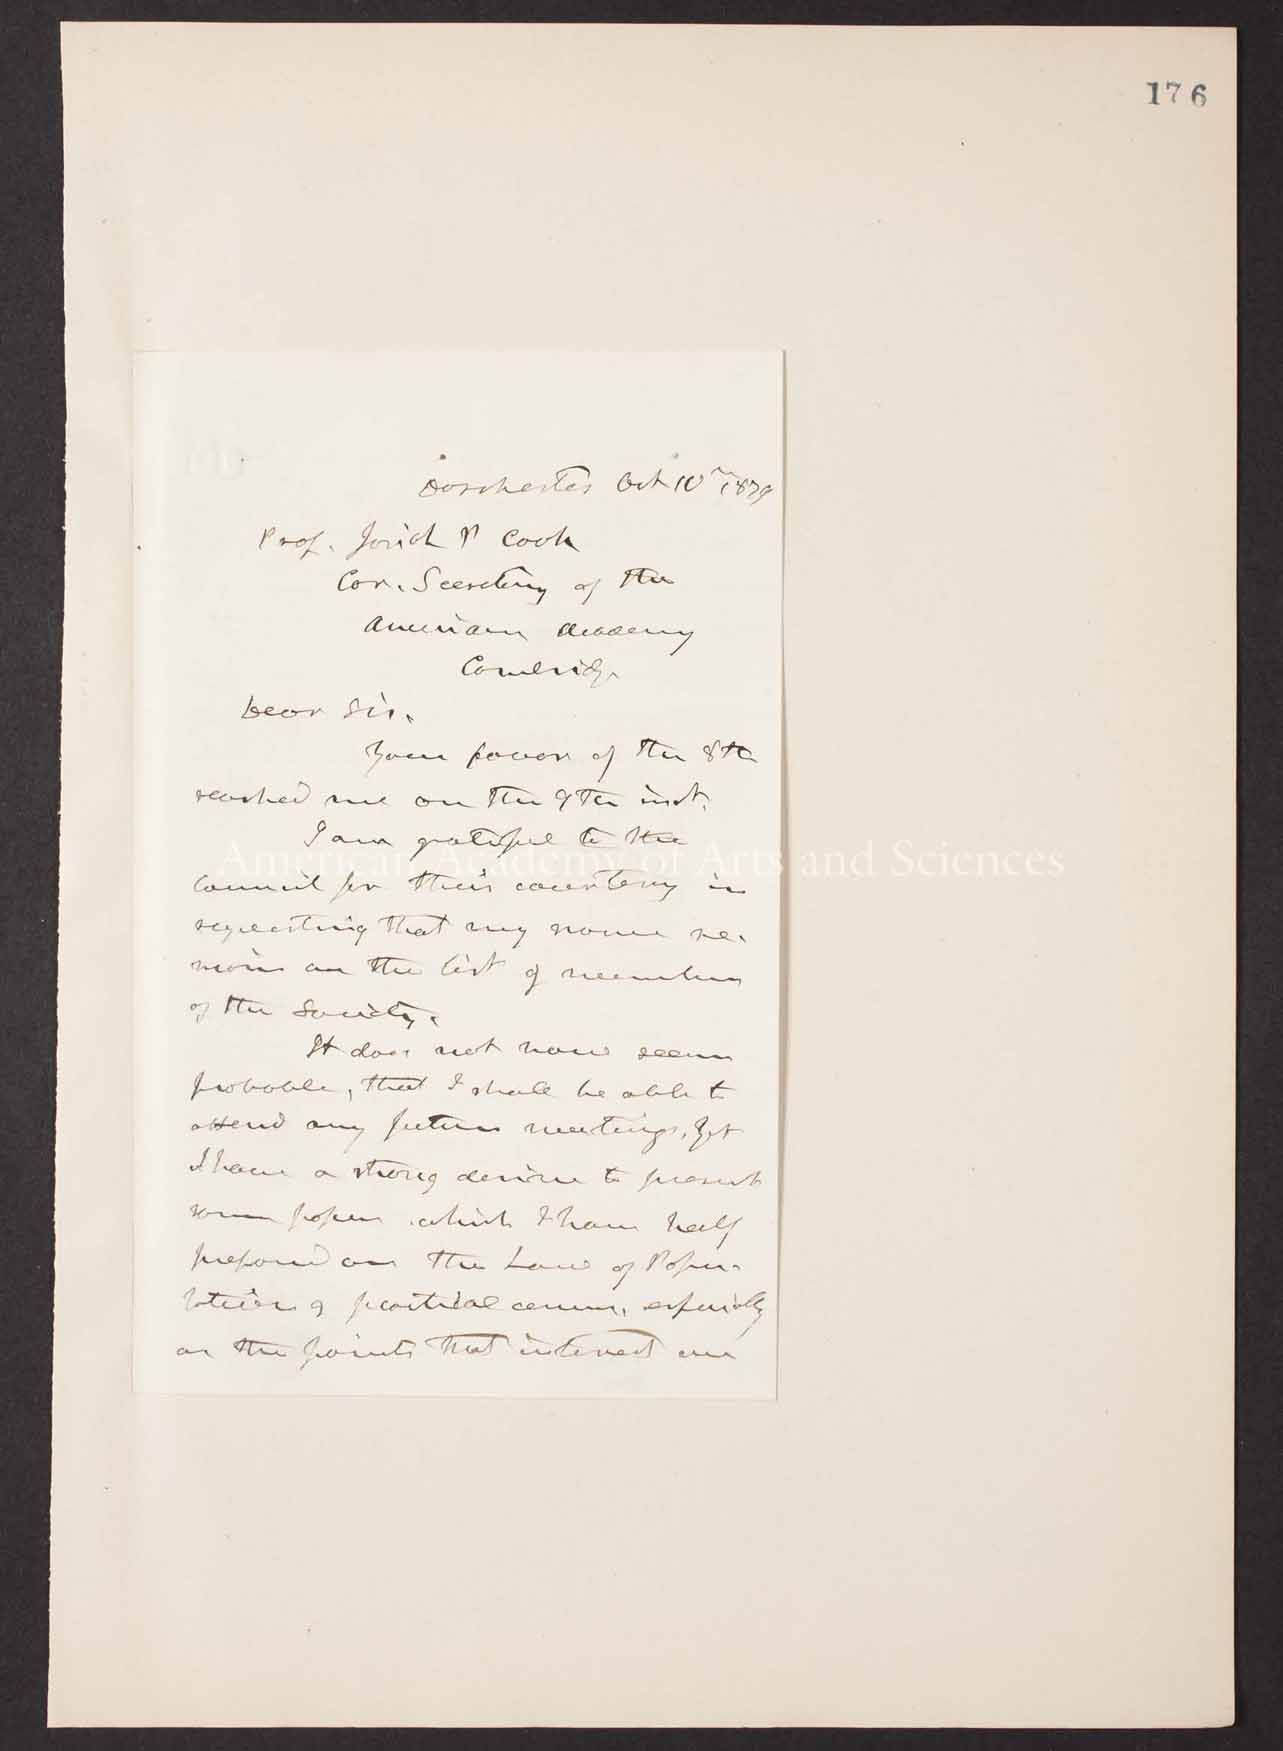 176
Dorchester Oct 10th 1879
Prof. Josiah P Cook
Cor. Secretary of the
American Academy
Cambridge
Dear Sir.
Your favor of the 8th
reached me on the 9th inst.
I am grateful to the
Council for their courtesy in
requesting that my name re-
main on the list of members
of the Society.
It does not now seem
probable, that I shall be able to
attend any future meetings, Yet
I have a strong desire to present
some papers which I have half
prepared on the Law of Popu-
lation of practical, especially
on the points that interest me
American Academy of Arts and Sciences